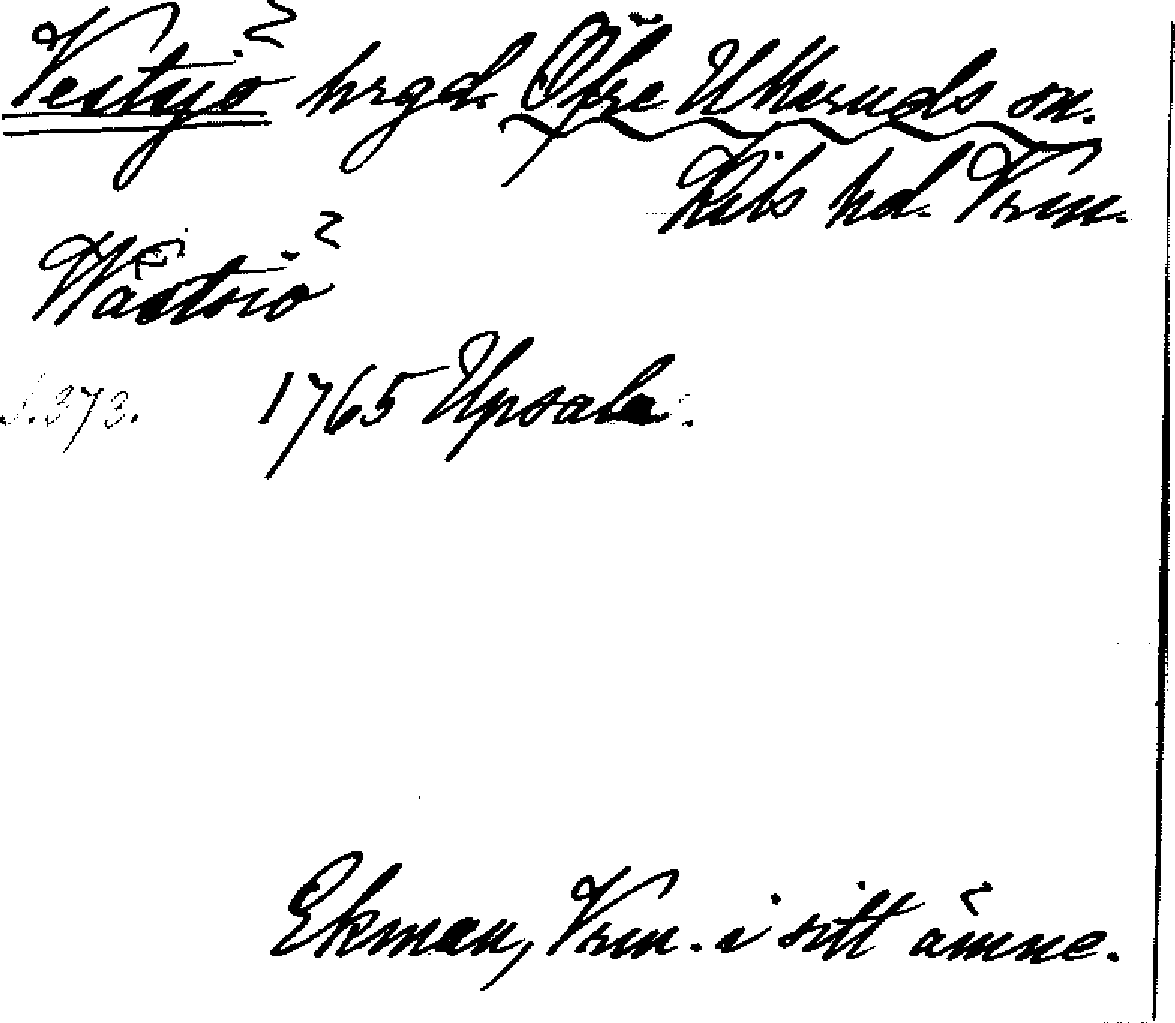 Vestsjö hrgd. Öfre Ulleruds sn.
Kils hd. Vrm.
Wästsiö
s. 373. 1765 Upsala.
Ekman, Vrm. i sitt ämne.